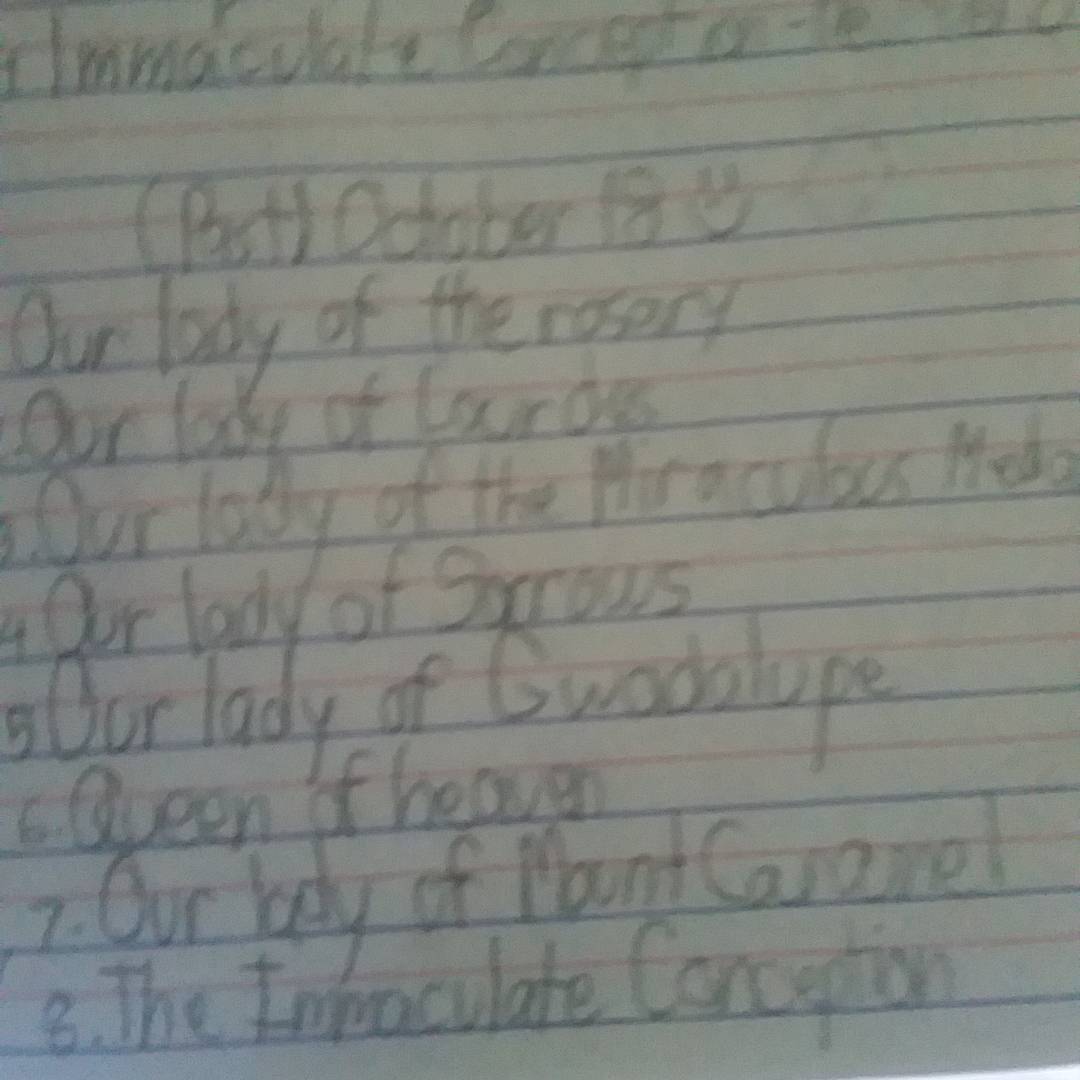 Immaculate Conception
October 18
Our lady of the rosery
Our lady of Lourdes
3. Our lady of the Miraculous Meda
4 Our lady of Sorrows
5 Our lady of Guadalupe
6. Queen of heaven
7. Our lady of Mount Caramel
8. The Immaculate Conception